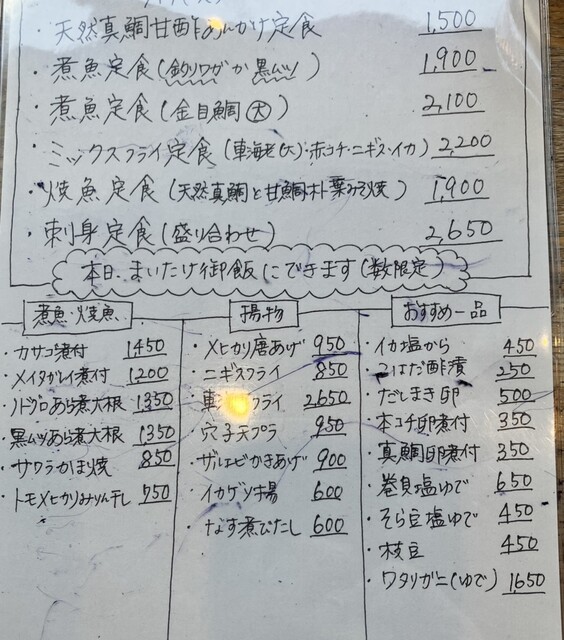 ・天然真鯛甘酢あんかけ定食 1,500
・煮魚定食(釣りワガか黒ムツ) 1,900
・煮魚定食(金目鯛大) 2,100
・ミックスフライ定食(車海老(大)・赤コチ・ニギス・イカ) 2,200
・焼魚定食(天然真鯛と甘鯛朴葉みそ焼) 1,900
・刺身定食(盛り合わせ) 2,650
本日、まいたけ御飯にできます(数限定)
煮魚・焼魚
・カサゴ煮付 1450
・メイタガレイ煮付 1200
・ノドグロあら煮大根 1350
・黒ムツあら煮大根 1350
・サワラかま焼 850
・トモメヒカリみりん干し 750
揚物
・メヒカリ唐あげ 950
・ニギスフライ 850
・車 フライ 2,650
・穴子天プラ 950
・ザルエビかきあげ 900
・イカゲソ揚 600
・なす煮びたし 600
おすすめ一品
・イカ塩から 450
・こはだ酢漬 250
・だしまき卵 500
・本コチ卵煮付 350
・真鯛卵煮付 350
・巻貝塩ゆで 650
・そら豆塩ゆで 450
・枝豆 450
・ワタリガニ(ゆで) 1,650